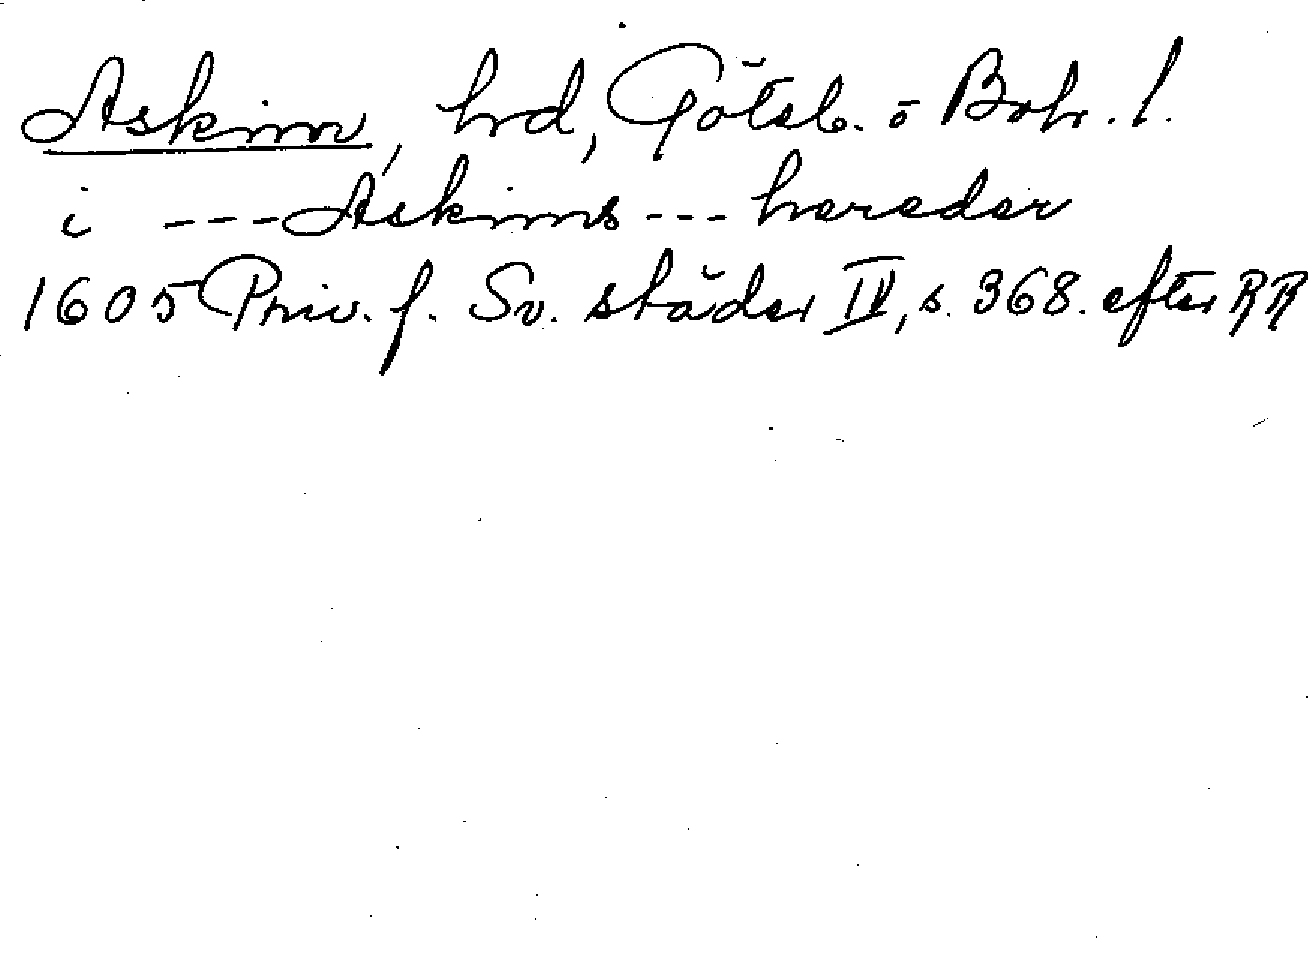 Askim, hrd, Götsb. o Boh. l.
i --- Askims --- hereder
1605 Priv. f. Sv. städer IV, s. 368. efter RR